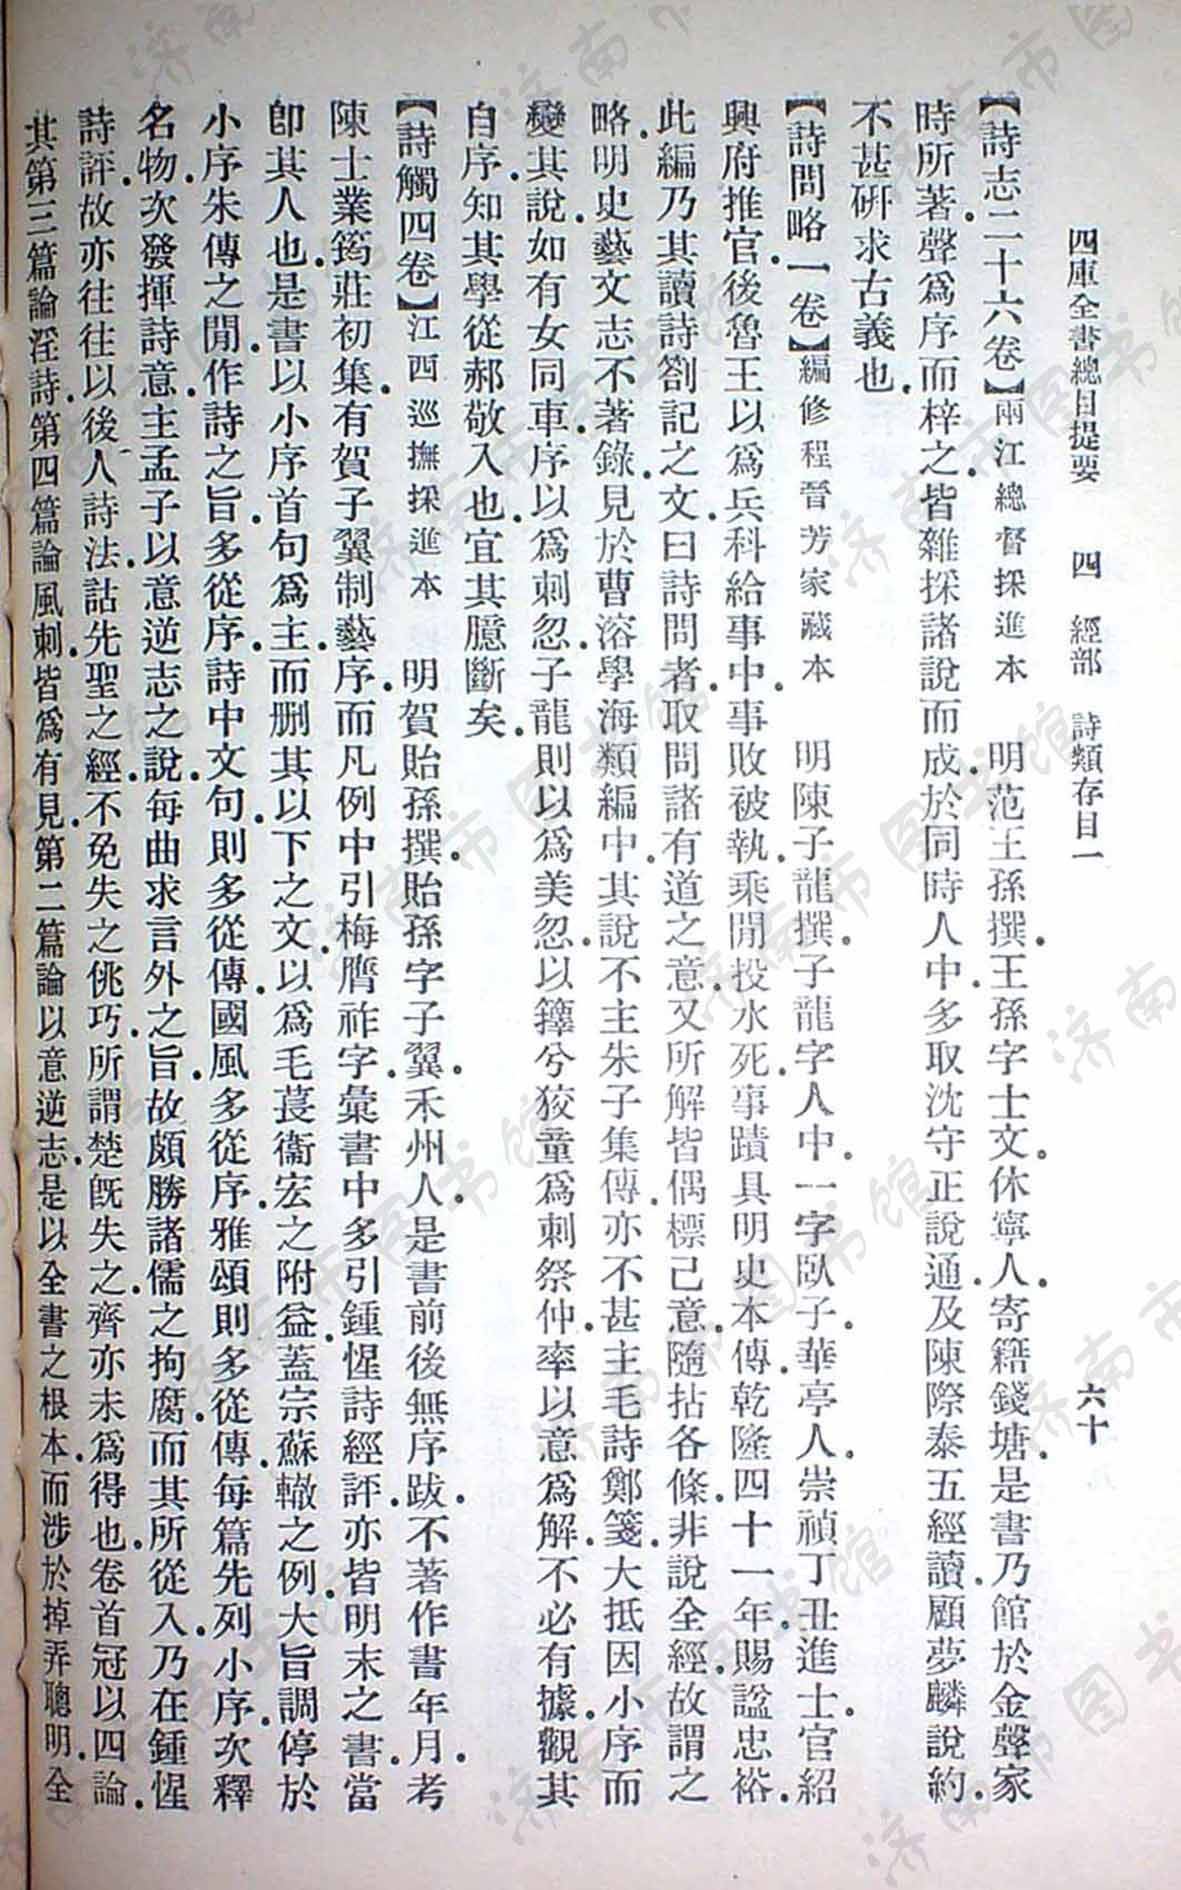 四庫全書總目提要　四　經部　詩類存目一　六十
【詩志二十六卷】兩江總督採進本　明范王孫撰．王孫字士文．休寧人．寄籍錢塘．是書乃館於金聲家
時所著．聲爲序而梓之．皆雜採諸說而成．於同時人中．多取沈守正說通．及陳際泰五經讀．顧夢麟說約．
不甚硏求古義也．
【詩問略一卷】編修程晉芳家藏本　明陳子龍撰．子龍字人中．一字臥子．華亭人．崇禎丁丑進士．官紹
興府推官．後魯王以爲兵科給事中．事敗被執．乘閒投水死．事蹟具明史本傳．乾隆四十一年．賜諡忠裕．
此編乃其讀詩劄記之文．曰詩問者．取問諸有道之意．又所解皆偶標己意．隨拈各條．非說全經．故謂之
略．明史藝文志不著錄．見於曹溶學海類編中．其說不主朱子集傳．亦不甚主毛詩鄭箋．大抵因小序而
變其說．如有女同車．序以爲刺忽．子龍則以爲美忽．以籜兮狡童爲刺祭仲．率以意爲解．不必有據．觀其
自序．知其學從郝敬入也．宜其臆斷矣．
【詩觸四卷】江西巡撫採進本　明賀貽孫撰．貽孫字子翼．禾州人．是書前後無序跋．不著作書年月．考
陳士業筠莊初集．有賀子翼制藝序．而凡例中引梅膺祚字彙．書中多引鍾惺詩經評．亦皆明末之書．當
卽其人也．是書以小序首句爲主．而刪其以下之文．以爲毛萇衞宏之附益．蓋宗蘇轍之例．大旨調停於
小序朱傳之閒．作詩之旨．多從序．詩中文句．則多從傳．國風多從序．雅頌則多從傳．每篇先列小序．次釋
名物．次發揮詩意．主孟子以意逆志之說．每曲求言外之旨．故頗勝諸儒之拘腐．而其所從入．乃在鍾惺
詩評．故亦往往以後人詩法．詁先聖之經．不免失之佻巧．所謂楚旣失之．齊亦未爲得也．卷首冠以四論．
其第三篇論淫詩．第四篇論風刺．皆爲有見．第二篇論以意逆志．是以全書之根本．而涉於掉弄聰明．全